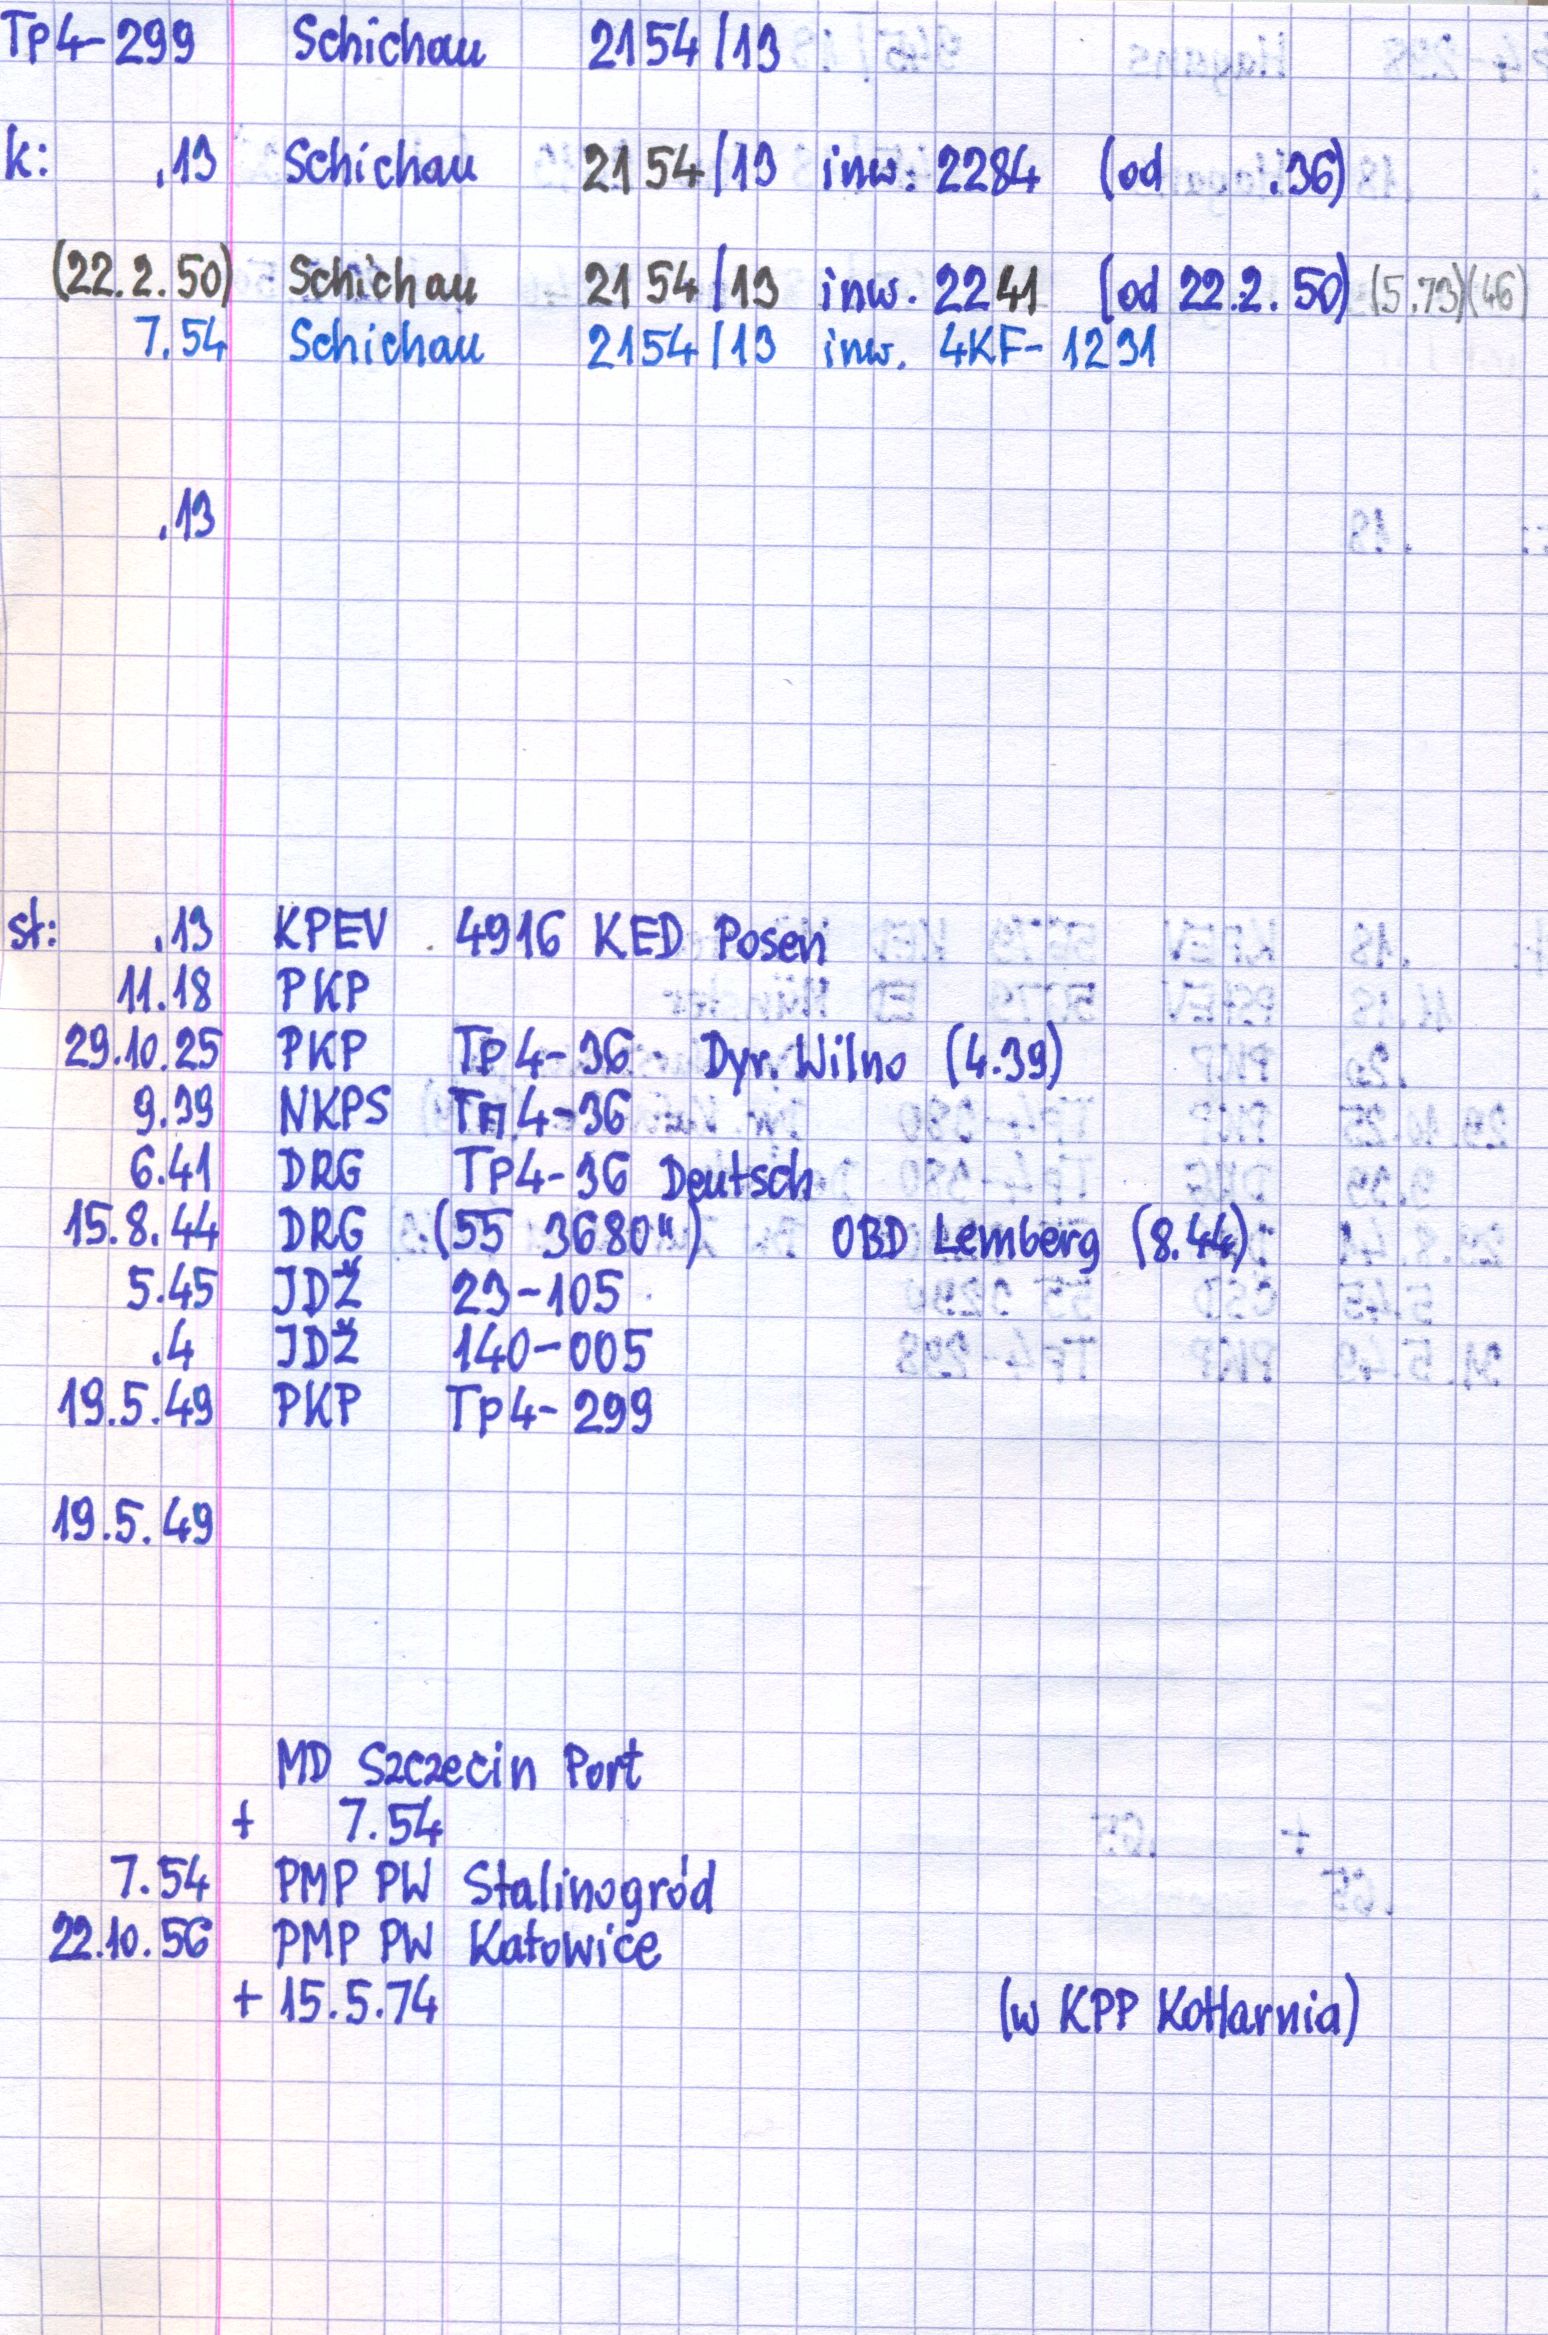 Tp4-299 Schichau 2154/13
k: .13 Schichau 2154/13 inw. 2284 (od .36)
(22.2.50) Schichau 2154/13 inw. 2241 (od 22.2.50) (5.73)(46)
7.54 Schichau 2154/13 inw. 4KF-1231
.13
st: .13 KPEV 4916 KED Posen
11.18 PKP
29.10.25 PKP Tp4-36 Dyr. Wilno (4.39)
9.39 NKPS Тп4-36
6.41 DRG Tp4-36 Deutsch
15.8.44 DRG (55 3680") OBD Lemberg (8.44)
5.45 JDŽ 23-105
.4 JDŽ 140-005
19.5.49 PKP Tp4-299
19.5.49
MD Szczecin Port
+ 7.54
7.54 PMP PW Stalinogród
22.10.56 PMP PW Katowice
+ 15.5.74 (w KPP Kotlarnia)